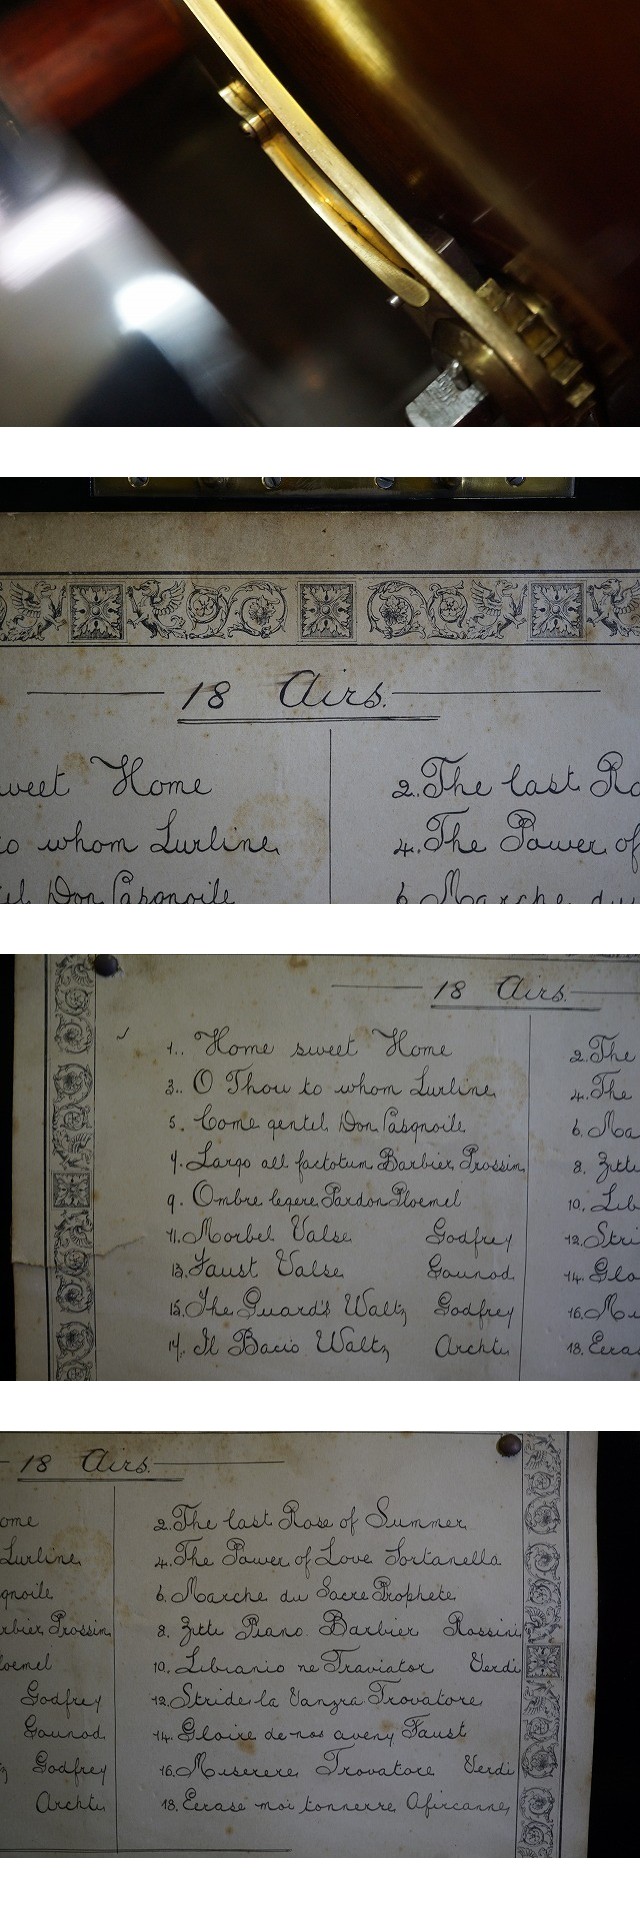 18 Airs.
sweet Home
2. The last Ro
to whom Lurline
4. The Power of
til Don Pasqnoile
6. Marche du
18 Airs.
1.. Home sweet Home
2. The
3.. O Thou to whom Lurline
4. The
5. Come gentil Don Pasqnoile
6. Ma
7. Largo all factotum Barbier Prossini
8. Zitti
9. Ombre legere Pardon Ploemel
10. Lib
11. Morbel Valse Godfrey
12. Stri
13. Faust Valse Gounod
14. Glo
15. The Guard's Waltz Godfrey
16. Mi
17. Il Bacio Waltz Archti
18. Ecras
18 Airs.
ome
2. The last Rose of Summer
Lurline
4. The Power of Love Sortanella
qnoile
6. Marche du Sacre Prophete
rbier Prossini
8. Zitti Piano Barbier Rossini
loemel
10. Libranio ne Traviator Verdi
Godfrey
12. Stride la Vanzra Trovatore
Gounod
14. Gloire de nos aveny Faust
Godfrey
16. Miserere Trovatore Verdi
Archti
18. Ecrase moi tonnerre Africanne